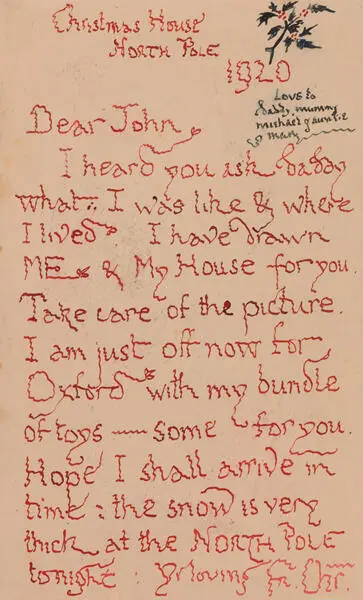 Christmas House
NORTH POLE
1920
LOVE to
daddy, mummy
michael & auntie
mary
Dear John
I heard you ask daddy
what I was like & where
I lived. I have drawn
ME & My House for you.
Take care of the picture.
I am just off now for
Oxford with my bundle
of toys — some for you.
Hope I shall arrive in
time : the snow is very
thick at the NORTH POLE
tonight : Yr loving Fr. Chr.